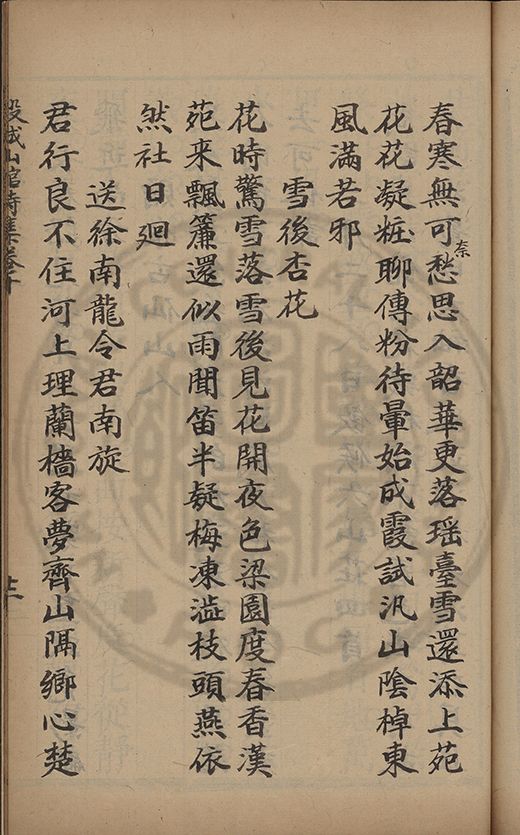 春寒無可奈愁思入韶華更落瑶臺雪還添上苑
花花凝粧聊傅粉待暈始成霞試汎山陰棹東
風滿若邪
雪後杏花
花時驚雪落雪後見花開夜色梁園度春香漢
苑来飄簾還似雨聞笛半疑梅凍溢枝頭燕依
然社日廻
送徐南龍令君南旋
君行良不住河上理蘭檣客夢齊山隅鄉心楚
穀城山館詩集卷十